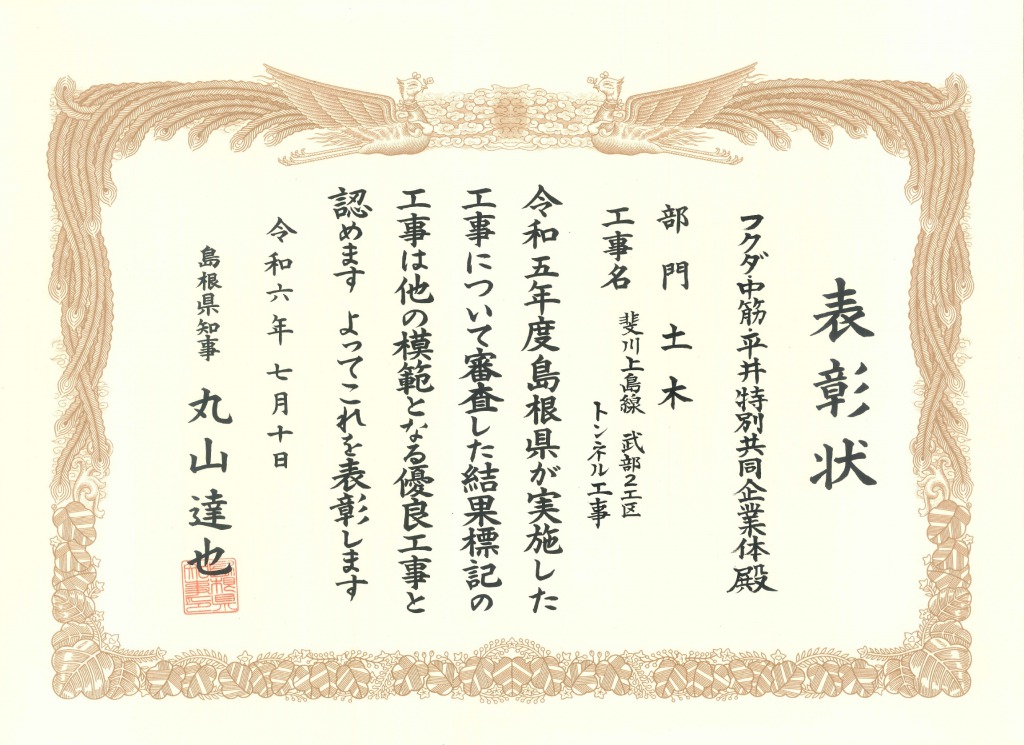 表彰状
フクダ・中筋・平井特別共同企業体殿
部門 土木
工事名 斐川上島線 武部2工区
トンネル工事
令和五年度島根県が実施した
工事について審査した結果標記の
工事は他の模範となる優良工事と
認めます よってこれを表彰します
令和六年七月十日
島根県知事 丸山達也